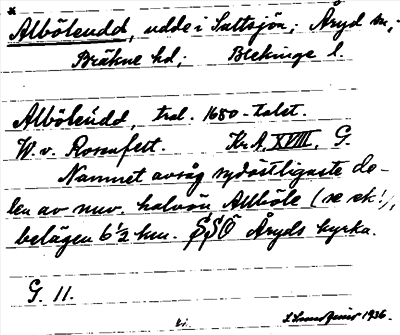 *
Alböleudd, udde i Saltsjön; Åryd sn,;
Bräkne hd,; Blekinge l.
Alböleudd, trol. 1680-talet.
W. v. Rosenfelt. Kr.A. XVIII. G.
Namnet avsåg sydöstligaste de-
len av nuv. halvön Allböle (se ek!),
belägen 6 1/2 km. SSÖ Åryds kyrka.
G. 11.
1936.